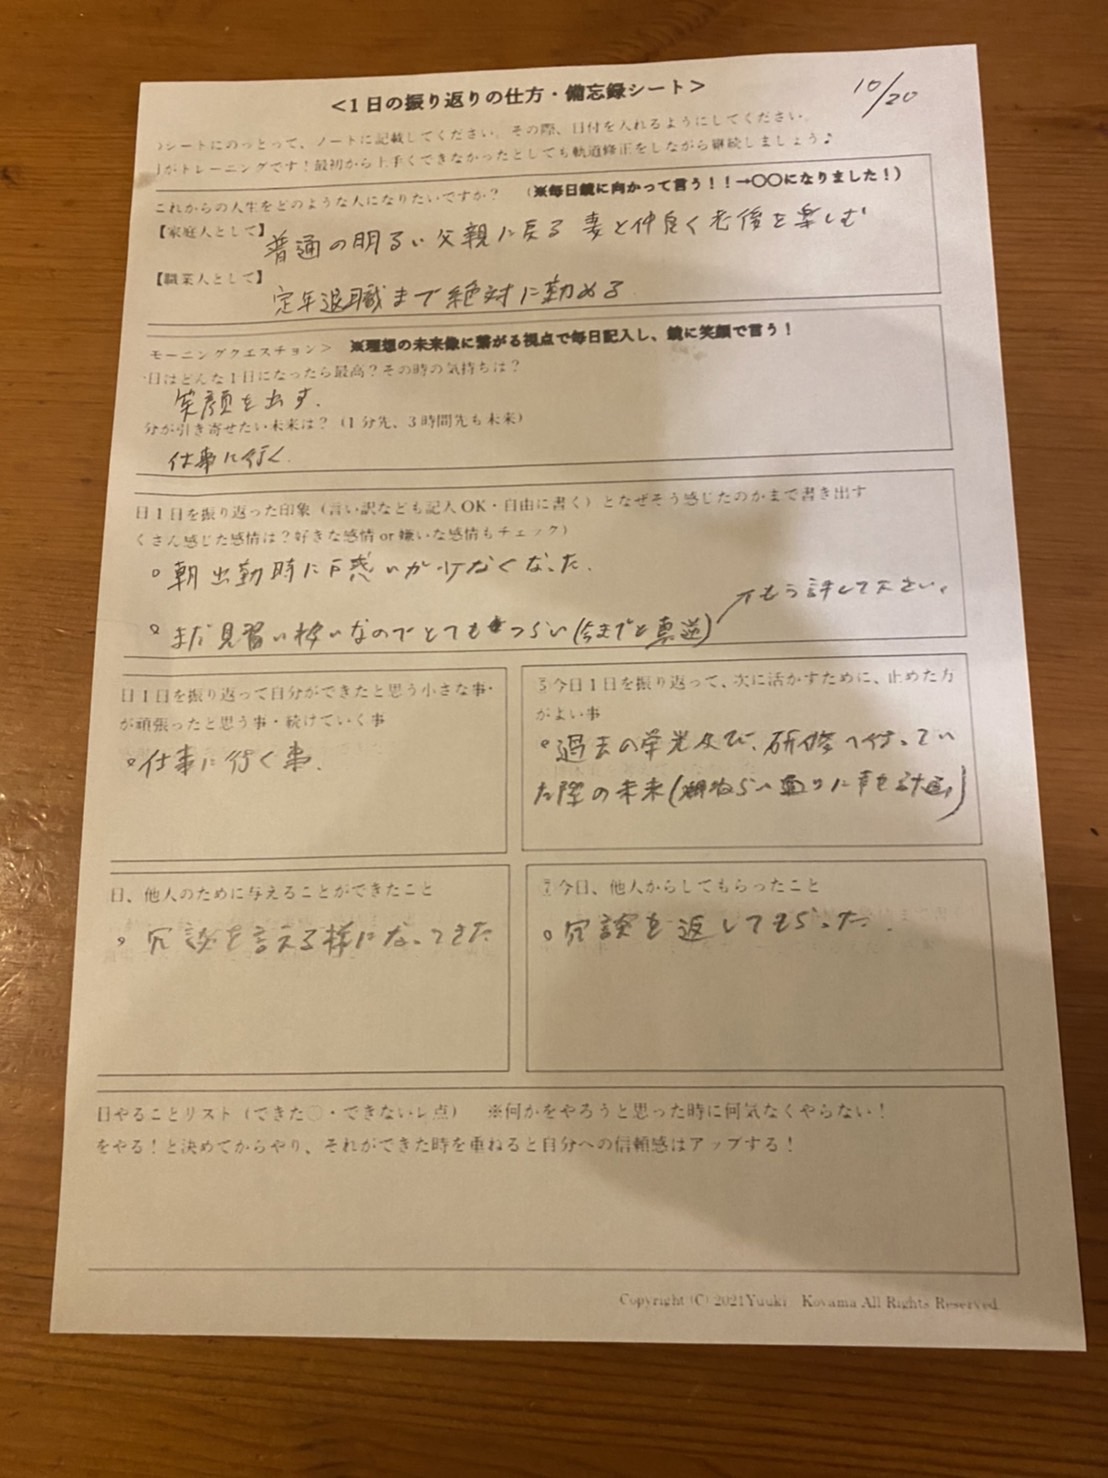 <1日の振り返りの仕方・備忘録シート>
10/20
シートにのっとって、ノートに記載してください。その際、日付を入れるようにしてください。
がトレーニングです！最初から上手くできなかったとしても軌道修正をしながら継続しましょう♪
これからの人生をどのような人になりたいですか？ (※毎日鏡に向かって言う！！→○○になりました！)
【家庭人として】普通の明るい父親に戻る 妻と仲良く老後を楽しむ
【職業人として】
定年退職まで絶対に勤める
モーニングクエスチョン＞ ※理想の未来像に繋がる視点で毎日記入し、鏡に笑顔で言う！
日はどんな1日になったら最高？その時の気持ちは？
笑顔を出す.
分が引き寄せたい未来は？（1分先、3時間先も未来）
仕事に行く.
日1日を振り返った印象（言い訳なども記入OK・自由に書く）となぜそう感じたのかまで書き出す
くさん感じた感情は？好きな感情or嫌いな感情もチェック）
。朝出勤時に戸惑いが少なくなった.
もう許して下さい。
。まだ見習い扱いなのでとてもつらい(今までと真逆)
日1日を振り返って自分ができたと思う小さな事・
が頑張ったと思う事・続けていく事
。仕事に行く事.
⑤今日1日を振り返って、次に活かすために、止めた方
がよい事
。過去の栄光及び、研修へ行ってい
た際の未来(
日、他人のために与えることができたこと
。冗談を言える様になってきた
⑦今日、他人からしてもらったこと
。冗談を返してもらった.
日やることリスト（できた○・できないレ点） ※何かをやろうと思った時に何気なくやらない！
をやる！と決めてからやり、それができた時を重ねると自分への信頼感はアップする！
Copyright (C) 2021Yuuki Koyama All Rights Reserved